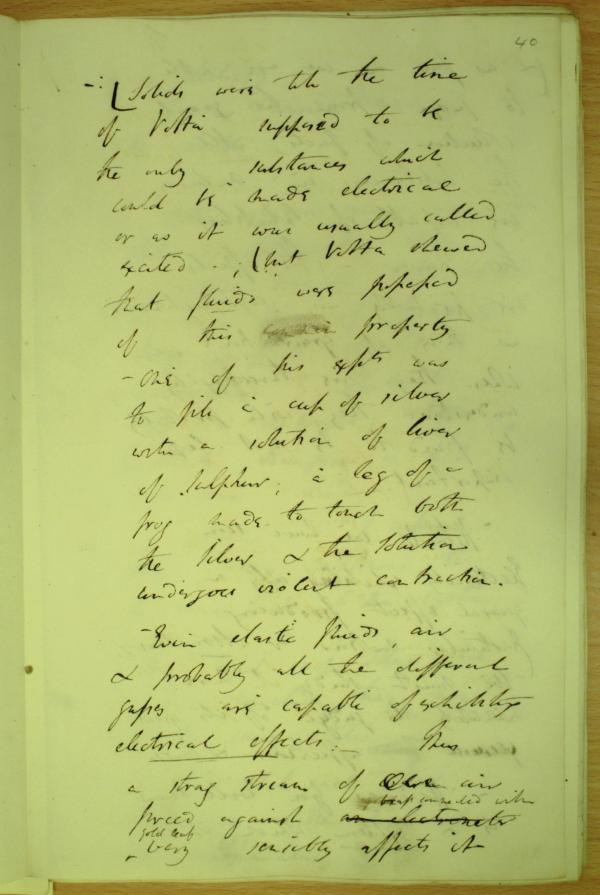 40
Solids were till the time
of Volta supposed to be
the only substances which
could be made electrical
or as it was usually called
excited - ; but Volta shewed
that fluids were possessed
of this property
- One of his expts was
to fill a cup of silver
with a solution of liver
of Sulphur; a leg of a
frog made to touch both
the Silver & the Solution
undergoes violent contraction.
- Even elastic fluids, air
& probably all the different
gases are capable of exhibiting
electrical effects. - Thus
a strong stream of air
connected with
forced against an electrometer
gold leaf
very sensibly affects it